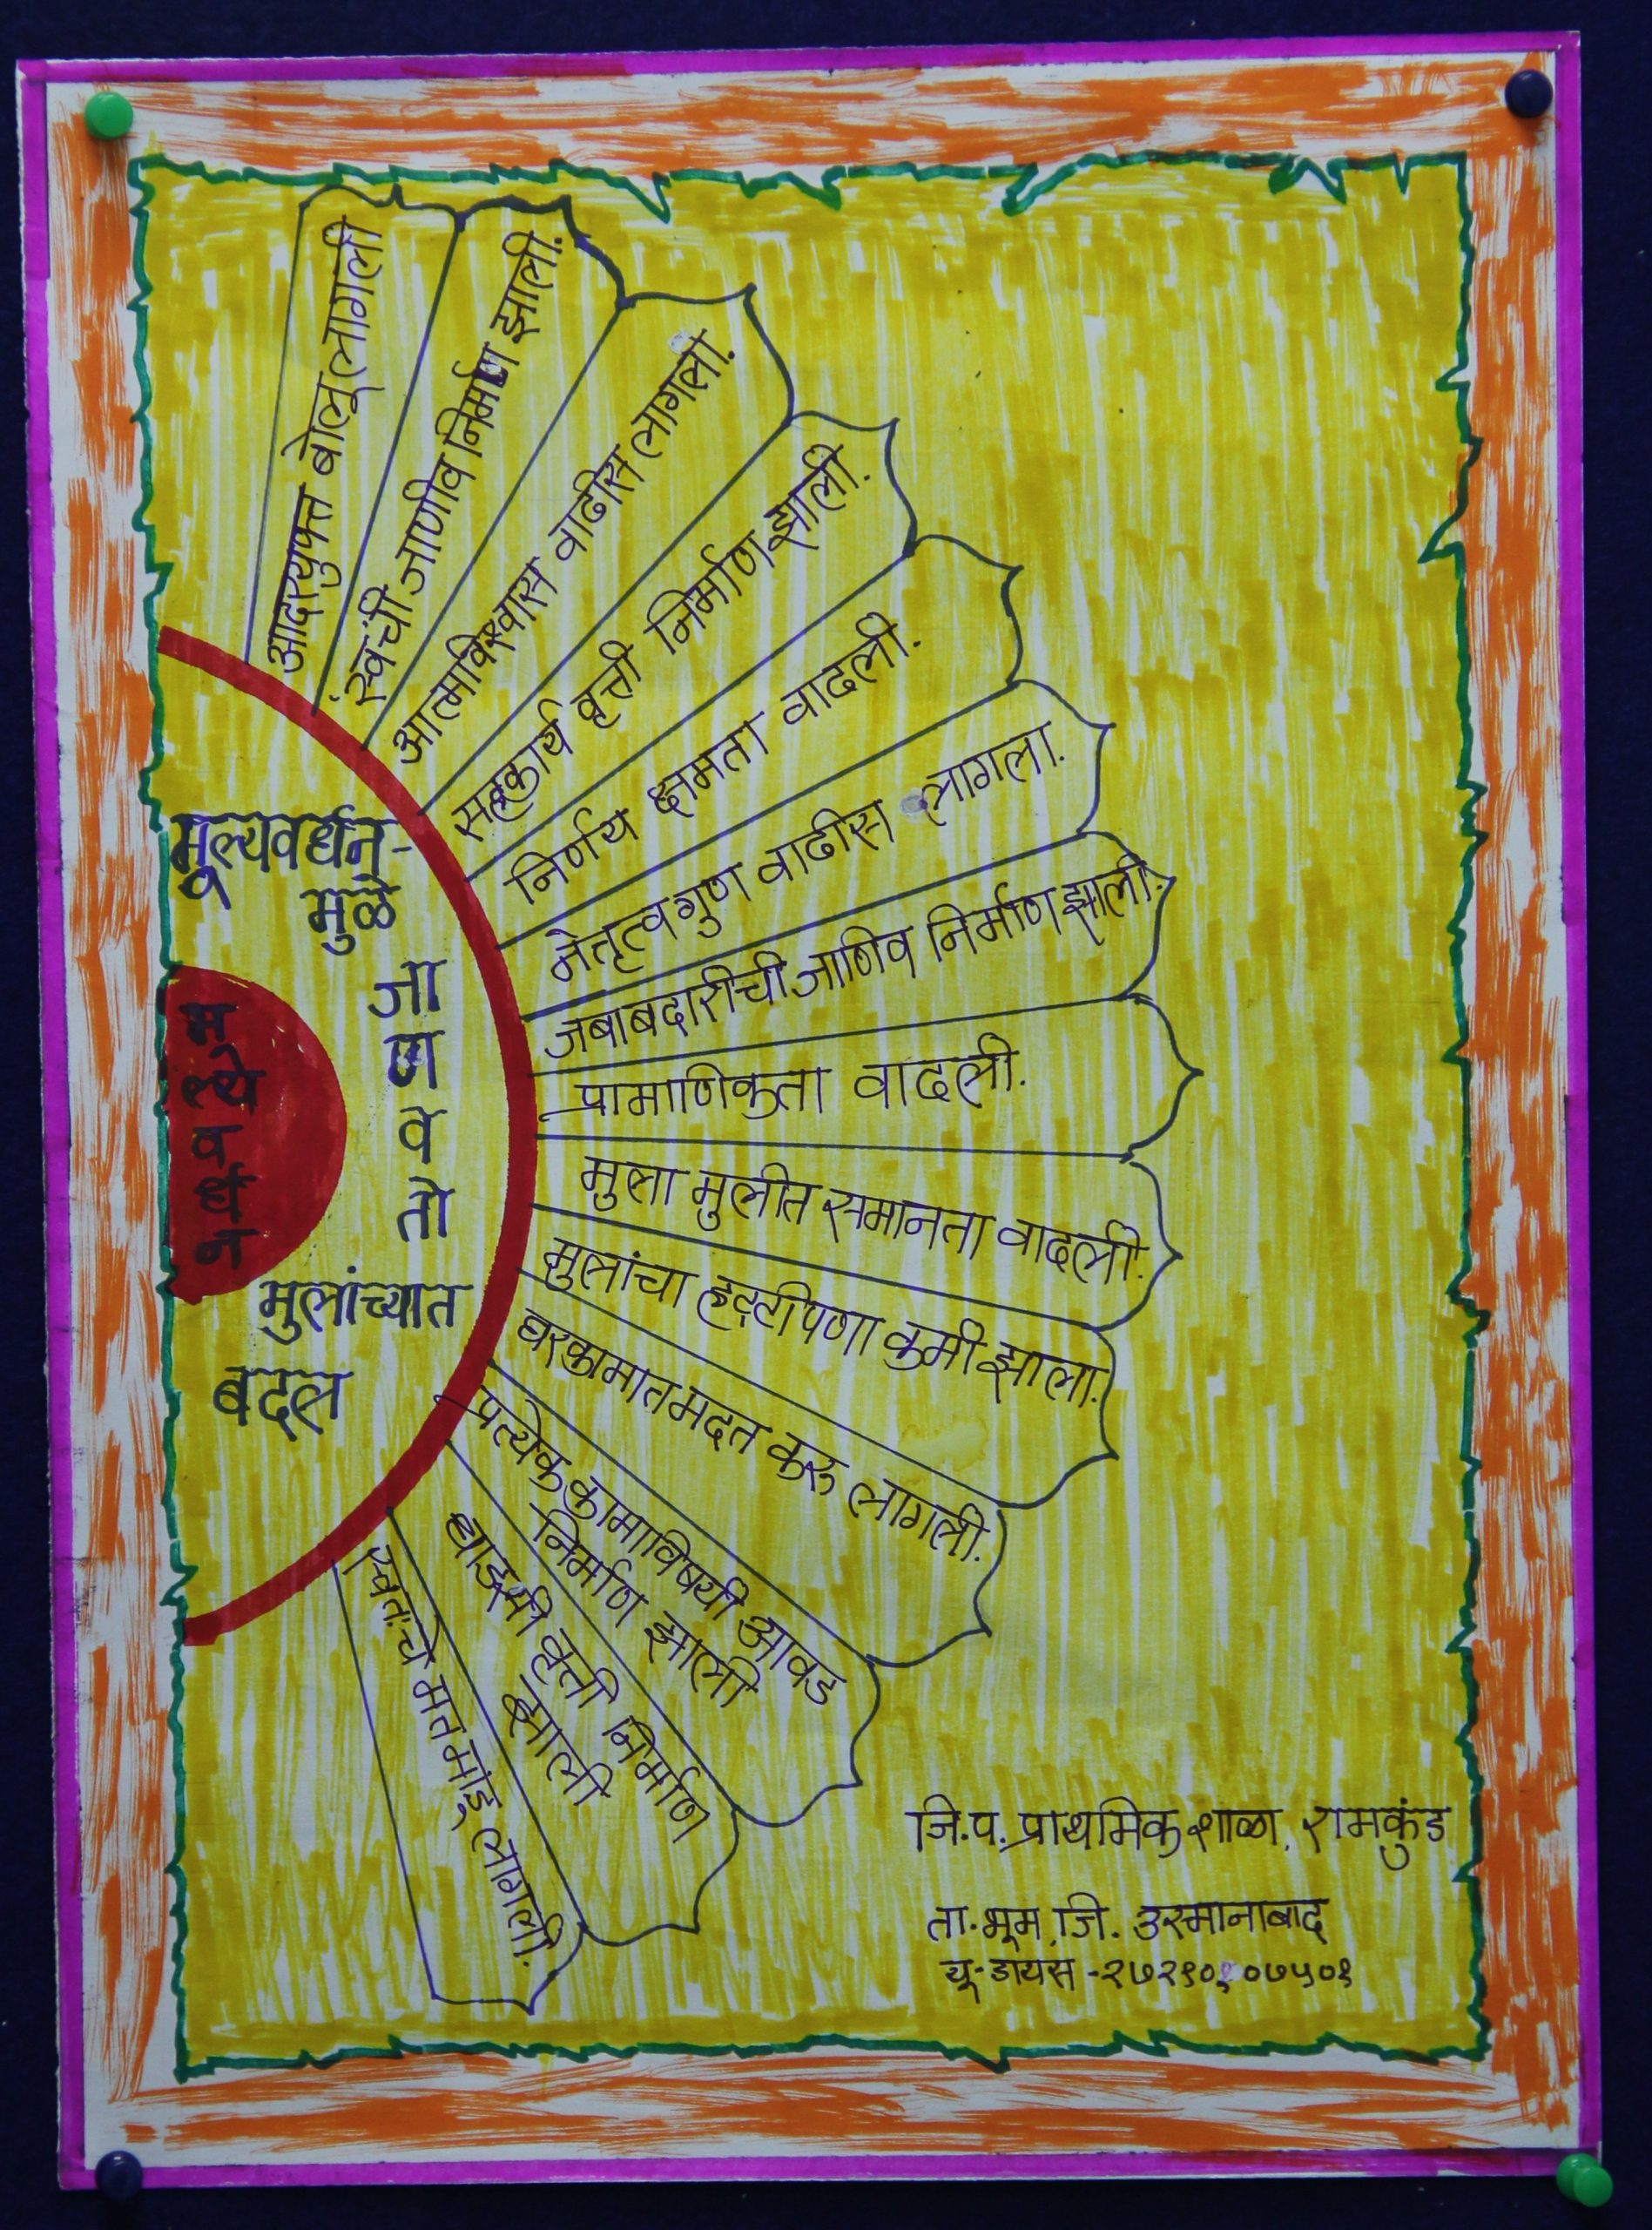 मूल्यवर्धन
मूल्यवर्धन-
मुळे
जाणवतो
मुलांच्यात
बदल
आदरयुक्त बोलू लागली
स्वची जाणीव निर्माण झाली.
आत्मविश्वास वाढीस लागला.
सहकार्य वृत्ती निर्माण झाली.
निर्णय क्षमता वाढली.
नेतृत्वगुण वाढीस लागला.
जबाबदारीची जाणिव निर्माण झाली.
प्रामाणिकता वाढली.
मुला मुलीत समानता वाढली.
मुलांचा हट्टीपणा कमी झाला.
घरकामात मदत करू लागली.
प्रत्येक कामाविषयी आवड
निर्माण झाली
धाडसी वृत्ती निर्माण
झाली
स्वतःचे मत मांडू लागली.
जि.प. प्राथमिक शाळा, रामकुंड
ता. भूम, जि. उस्मानाबाद
यू-डायस -